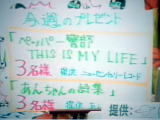 今週のプレゼント
「ペッパー警部
THIS IS MY LIFE」
3名様 提供 ニューセンチュリーレコード
「あんちゃんの詩集」
3名様 提供
提供: